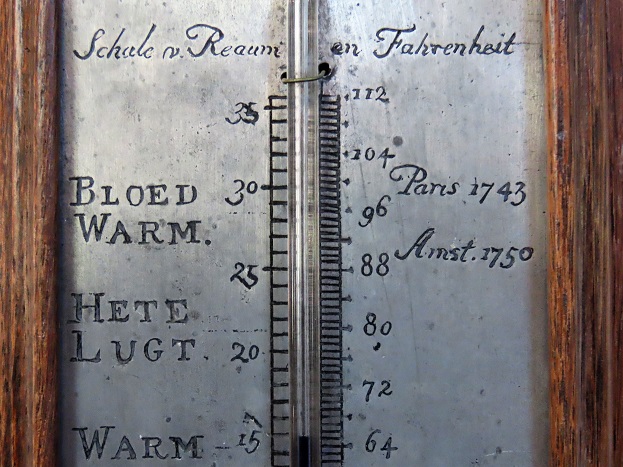 Schale v. Reaum en Fahrenheit
112
35
104
Paris 1743
BLOED 30
96
WARM.
Amst. 1750
25 88
HETE
80
LUGT. 20
72
WARM - 15 64